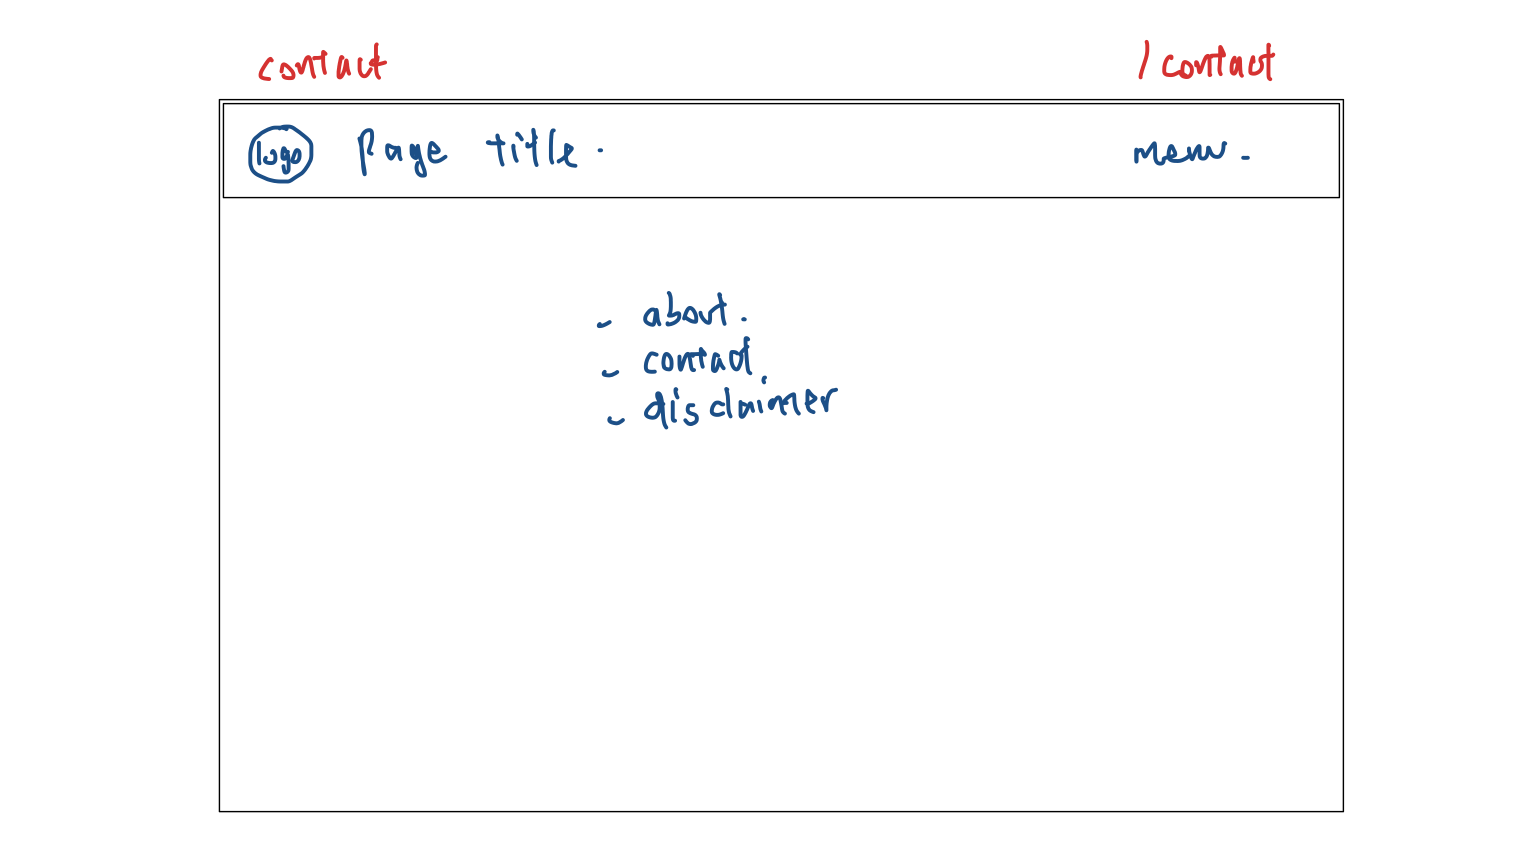 contact
/contact
logo Page title.
menu.
- about.
- contact.
- disclaimer